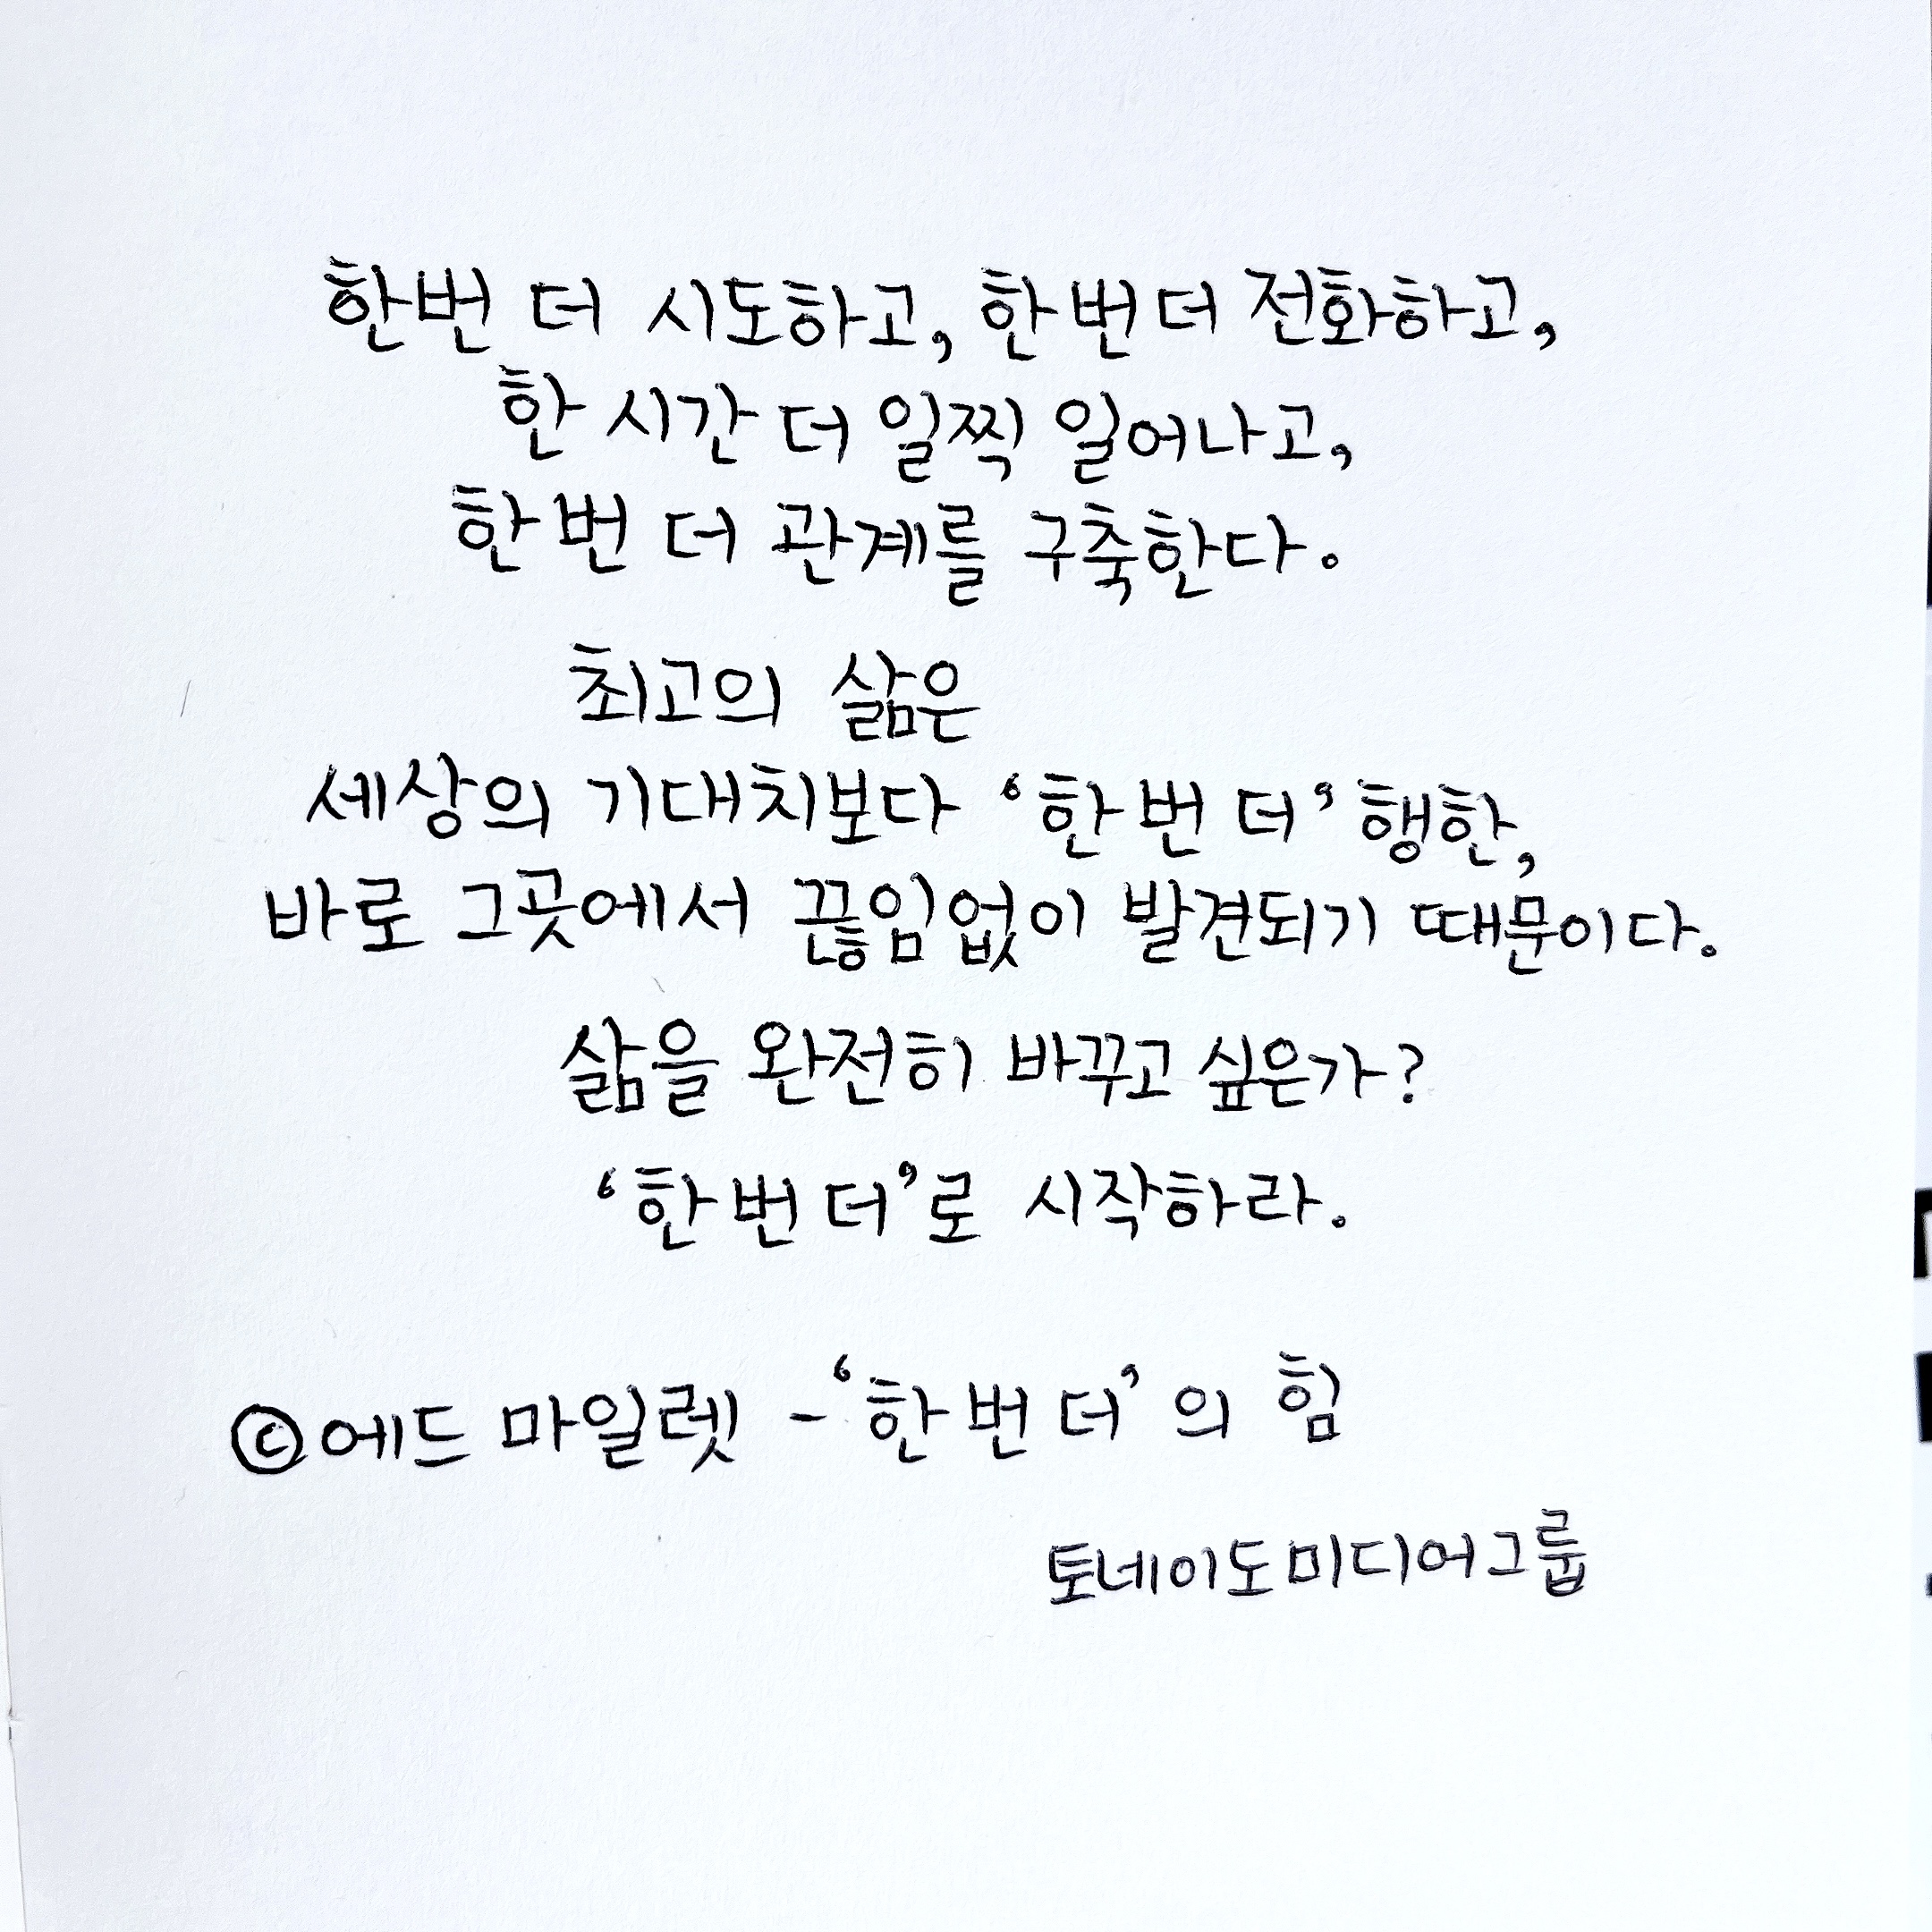 한번 더 시도하고, 한번 더 전화하고,
한 시간 더 일찍 일어나고,
한 번 더 관계를 구축한다.
최고의 삶은
세상의 기대치보다 ‘한 번 더’ 행한,
바로 그곳에서 끊임없이 발견되기 때문이다.
삶을 완전히 바꾸고 싶은가?
‘한 번 더’로 시작하라.
©에드 마일렛 - ‘한 번 더’의 힘
토네이도미디어그룹